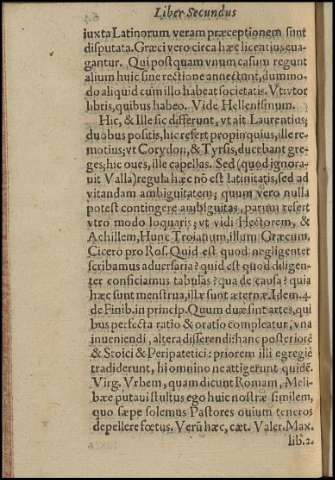 Liber Secundus
iuxta Latinorum veram præceptionem sint
disputata. Græci vero circa hæc licentius eua-
gantur. Qui postquam vnum casum regunt
alium huic sine rectione annectunt, dummo-
do aliquid cum illo habeat societatis. Vt: vtor
libris, quibus habeo. Vide Hellenismum.
Hic, & Ille sic differunt, vt ait Laurentius;
duobus positis, hic refert propinquius, ille re-
motius; vt Corydon, & Tyrsis, ducebant gre-
ges; hic oues, ille capellas. Sed (quod ignora-
uit Valla) regula hæc nō est latinitatis, sed ad
vitandam ambiguitatem; quum vero nulla
potest contingere ambiguitas, parum refert
vtro modo loquaris; vt vidi Hectorem, &
Achillem, Hunc Troianum, illum Græcum.
Cicero pro Ros. Quid est quod negligenter
scribamus aduersaria? quid est quod diligen-
ter conficiamus tabulas? qua de causa? quia
hæc sunt menstrua, illæ sunt æternæ. Idem. 4.
de Finib. in princip. Quum duæ sint artes, qui
bus perfecta ratio & oratio compleatur, vna
inueniendi, altera disserendi: hanc posteriorē
& Stoici & Peripatetici: priorem illi egregiè
tradiderunt, hi omnino ne attigerunt quidē.
Virg. Vrbem, quam dicunt Romam, Meli-
bæe putaui stultus ego huic nostræ similem,
quo sæpe solemus Pastores ouium teneros
depellere fœtus. Verū hæc, cæt. Valer. Max.
lib. 2.